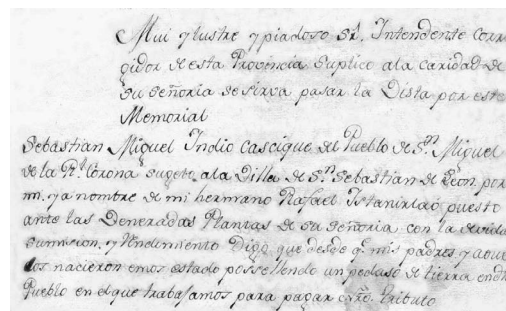 Mui ylustre ypiadoso Sr. Intendente Corre
gidor de esta Provencia Suplico ala caridad de
Su Señoria se sirva pasar la Vista por este
Memorial
Sebastian Miguel Indio Cascique del Pueblo de Sn. Miguel
de la Rl. Corona sugeto ala Villa de Sn. Sebastian de Leon por
mi. ya nombre de mi hermano Rafael Estanislao, puesto
ante las Veneradas Plantas de su señoria, con la devida
sumicion, y Rendimiento Digo, que desde q. mis padres, y aque
llos nacieron emos estado possellendo un pedaso de tierra en dho
Pueblo en el que trabajamos para pagar ntro. tributo